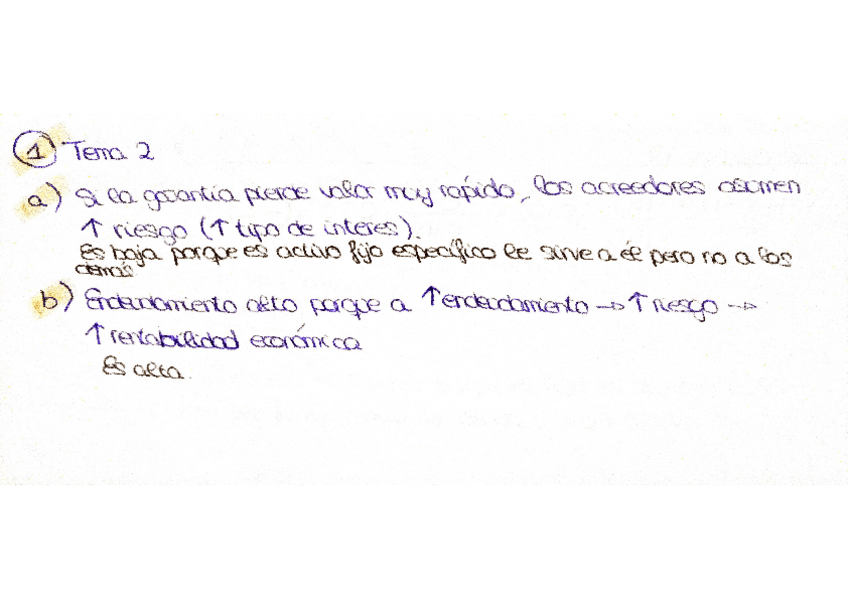 1 Tema 2
a) Si la garantía pierde valor muy rápido, los acreedores asumen
↑ riesgo (↑ tipo de interes).
Es baja porque es activo fijo específico le sirve a él pero no a los
demás
b) Endeudamiento alto porque a ↑ endeudamiento → ↑ riesgo →
↑ rentabilidad económica
Es alta.